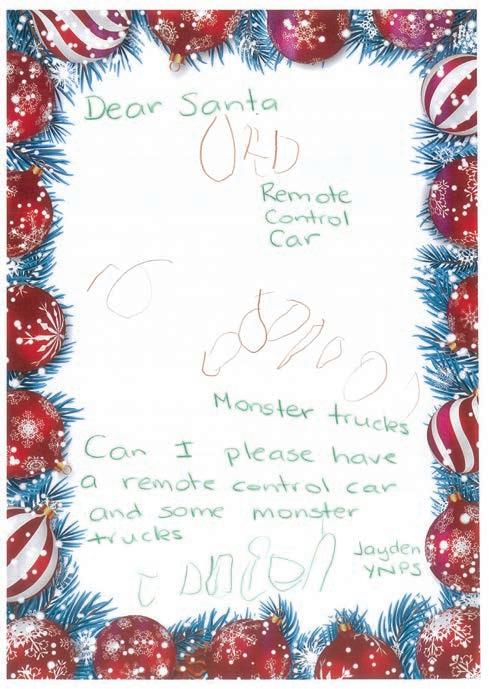 Dear Santa
Remote
Control
Car
Monster trucks
Can I please have
a remote control car
and some monster
trucks
Jayden
YNPS